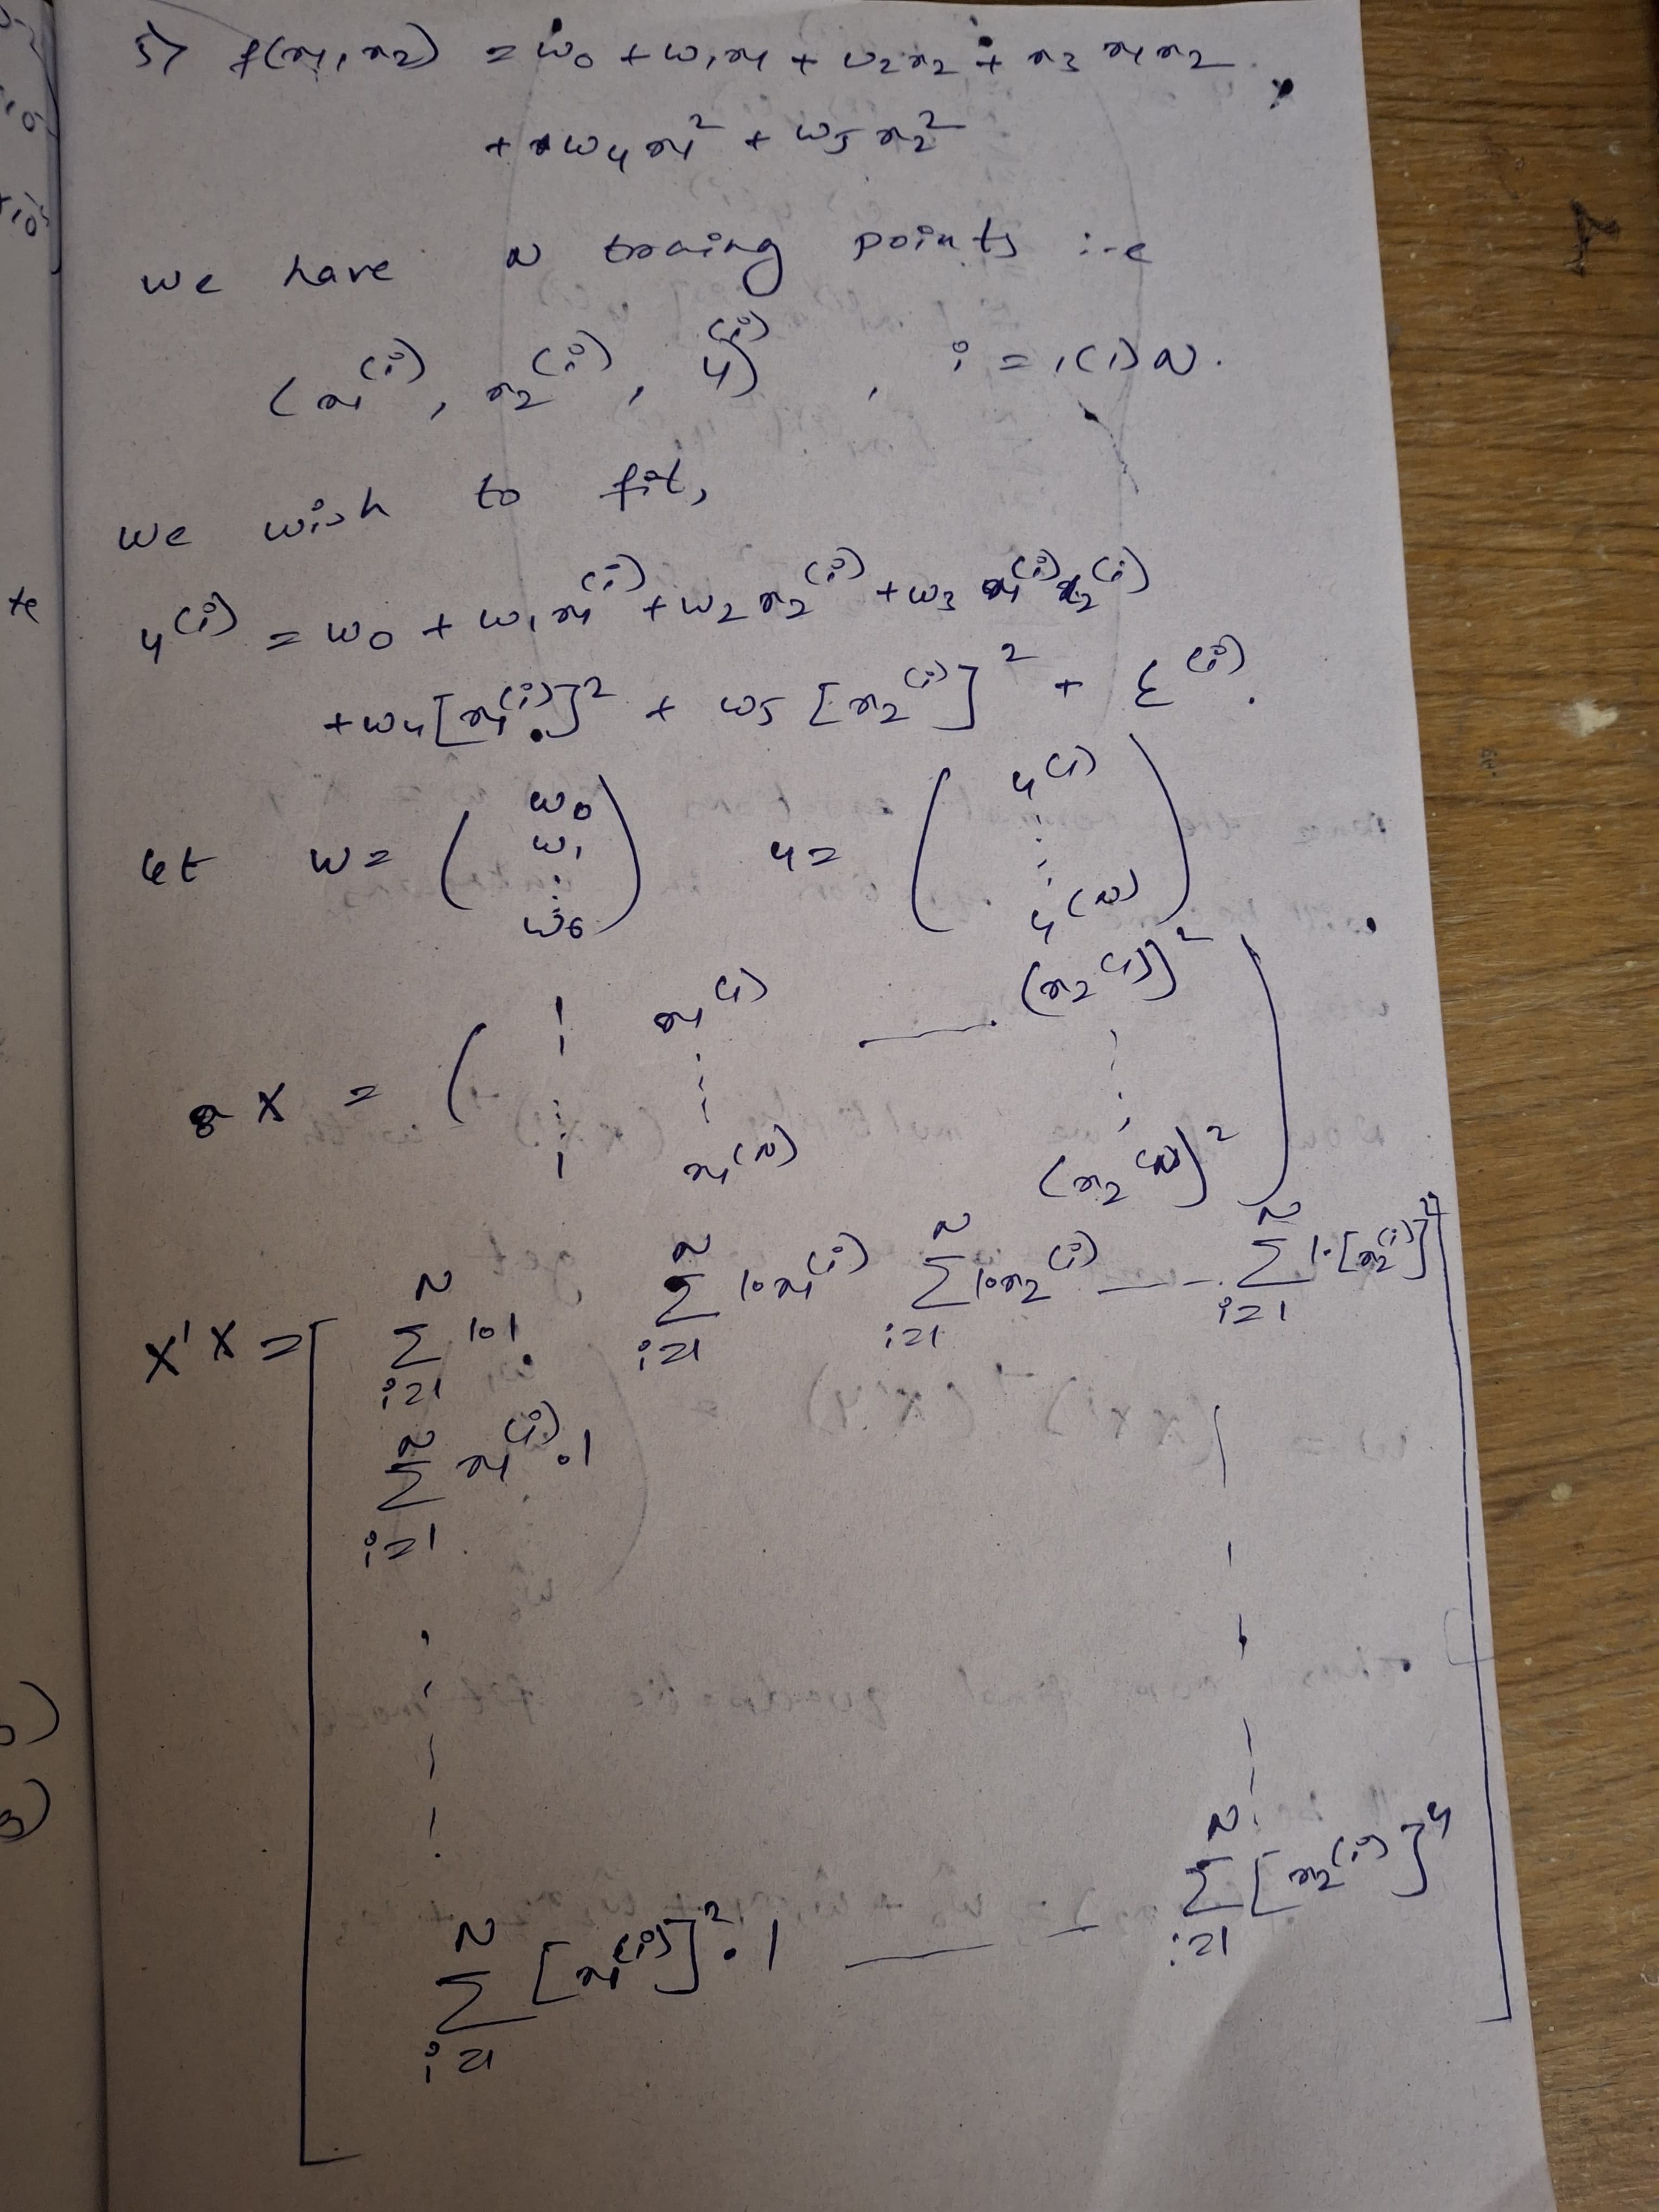 5) f(x1, x2) = w0 + w1x1 + w2x2 + x3 x1x2
+ w4 x1² + w5 x2²
we have N traing points i.e
(x1^(i), x2^(i), y^(i)) , i = 1(1)N.
we wish to fit,
y^(i) = w0 + w1x1^(i) + w2 x2^(i) + w3 x1^(i) x2^(i)
+ w4[x1^(i)]² + w5 [x2^(i)]² + ε^(i).
let w = ( w0 w1 ⋮ w6 ) y = ( y^(1) ⋮ y^(N) )
& X = ( 1 x1^(1) — (x2^(1))²
⋮ ⋮ ⋮
1 x1^(N) (x2^(N))² )
X'X = [ Σ_{i=1}^{N} 1·1 Σ_{i=1}^{N} 1·x1^(i) Σ_{i=1}^{N} 1·x2^(i) --- Σ_{i=1}^{N} 1·[x2^(i)]²
Σ_{i=1}^{N} x1^(i)·1
⋮ ⋮
Σ_{i=1}^{N} [x1^(i)]²·1 —— Σ_{i=1}^{N} [x2^(i)]^4 ]
te